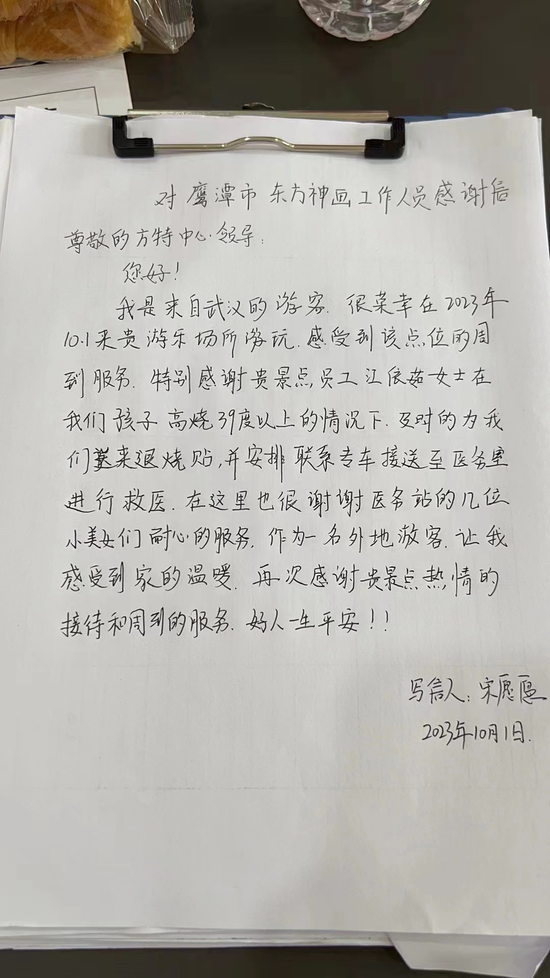 对鹰潭市东方神画工作人员感谢信
尊敬的方特中心领导:
您好!
我是来自武汉的游客.很荣幸在2023年
10.1来贵游乐场所游玩.感受到该点位的周
到服务.特别感谢贵景点员工江依茹女士在
我们孩子高烧39度以上的情况下.及时的为我
们送来退烧贴,并安排联系专车接送至医务室
进行救医.在这里也很谢谢医务站的几位
小美女们耐心的服务.作为一名外地游客.让我
感受到家的温暖.再次感谢贵景点热情的
接待和周到的服务.好人一生平安!!
写信人:宋
2023年10月1日.